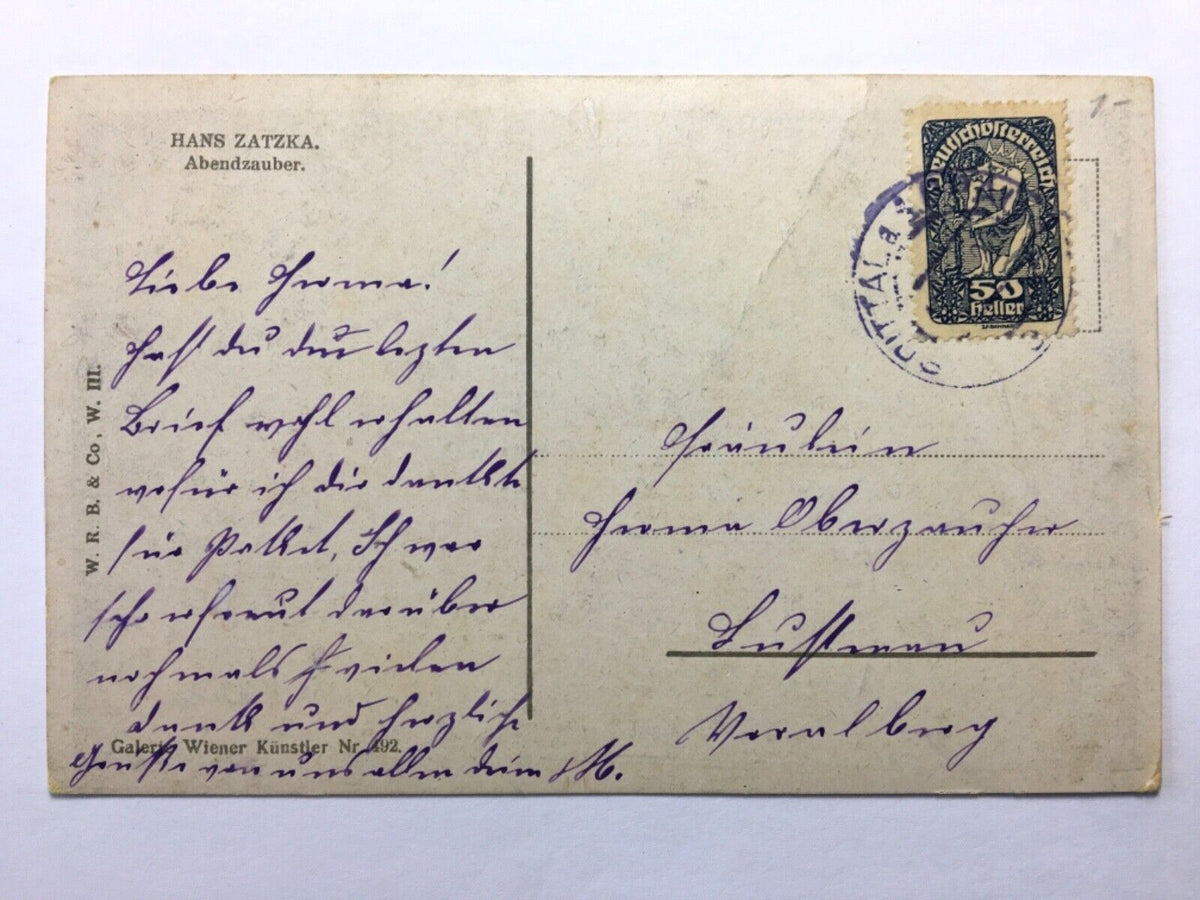 HANS ZATZKA.
Abendzauber.
1-
Deutschösterreich
50
Heller
SPITTAL a
W. R. B. & Co, W. III.
Liebe Herma!
Hast du den lezten
Brief wohl erhalten
wofür ich dir dankte
für Paket, Ich war
sehr erfreut darüber
nochmals vielen
Dank und herzliche
Grüße von uns allen dein M.
Galerie Wiener Künstler Nr. 492.
Fräulein
Herma Oberzaucher
Lustenau
Voralberg